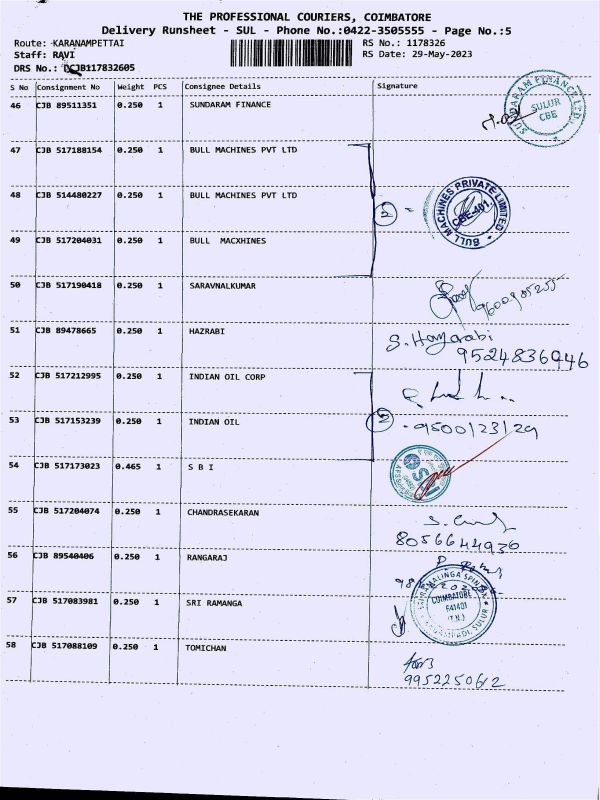 THE PROFESSIONAL COURIERS, COIMBATORE
Delivery Runsheet - SUL - Phone No.:0422-3505555 - Page No.:5
Route: KARANAMPETTAI RS No.: 1178326
Staff: RAVI RS Date: 29-May-2023
DRS No.: DCJB117832605
S No Consignment No Weight PCS Consignee Details Signature
46 CJB 89511351 0.250 1 SUNDARAM FINANCE
SUNDARAM FINANCE LTD. SULUR CBE
47 CJB 517188154 0.250 1 BULL MACHINES PVT LTD
48 CJB 514480227 0.250 1 BULL MACHINES PVT LTD
2 BULL MACHINES PRIVATE LIMITED CBE-401.
49 CJB 517204031 0.250 1 BULL MACXHINES
50 CJB 517190418 0.250 1 SARAVNALKUMAR
51 CJB 89478665 0.250 1 HAZRABI
S. Hazarabi
9524836946
52 CJB 517212995 0.250 1 INDIAN OIL CORP
53 CJB 517153239 0.250 1 INDIAN OIL
2 - 9500123129
54 CJB 517173023 0.465 1 S B I
55 CJB 517204074 0.250 1 CHANDRASEKARAN
8056644936
56 CJB 89540406 0.250 1 RANGARAJ
57 CJB 517083981 0.250 1 SRI RAMANGA
COIMBATORE
641401
(T.N.)
SULUR
58 CJB 517088109 0.250 1 TOMICHAN
9952250612